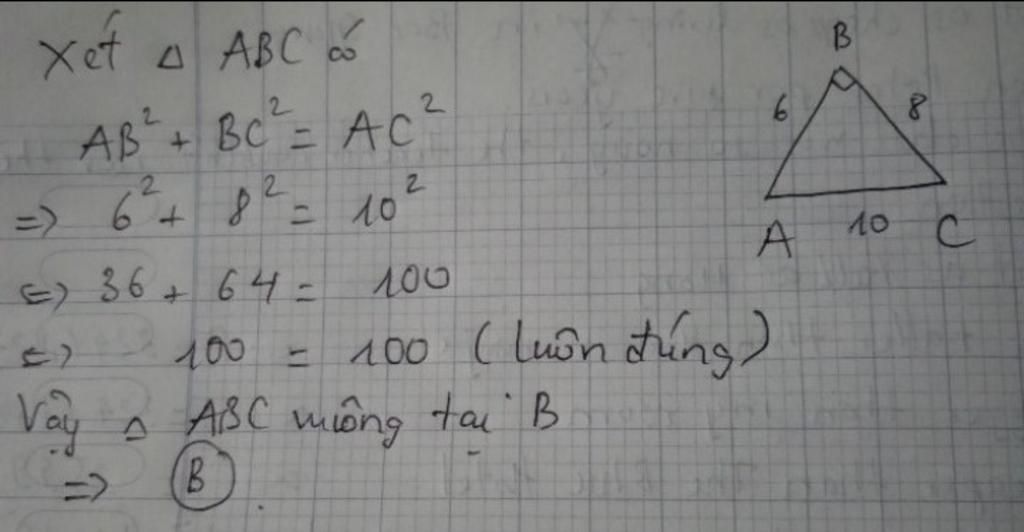 Xét Δ ABC có
AB² + BC² = AC²
=> 6² + 8² = 10²
<=> 36 + 64 = 100
<=> 100 = 100 (luôn đúng)
Vậy Δ ABC vuông tại B
=> B.
B
6 8
A 10 C